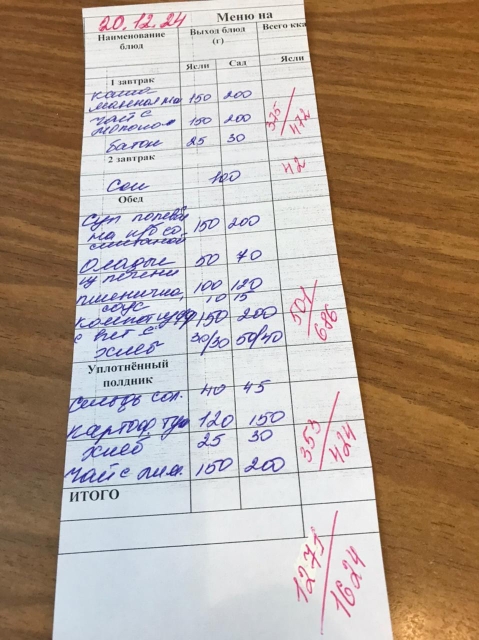 20.12.24 Меню на
Наименование Выход блюд Всего кка
блюд (г)
Ясли Сад Ясли
1 завтрак
каша
манная 150 200
чай с
молоко 150 200 325/472
батон 25 30
2 завтрак 42
Сок 100
Обед
Суп полевой 150 200
на к/б со
сметаной
Оладьи 50 70
из печени
пшенична 100 120
соус 10 15
компот 150 200 501/686
с вит с
хлеб 30/30 50/40
Уплотнённый
полдник
сельдь сол. 40 45
картоф туш 120 150
хлеб 25 30 353/424
чай с лим. 150 200
ИТОГО
1271/1624